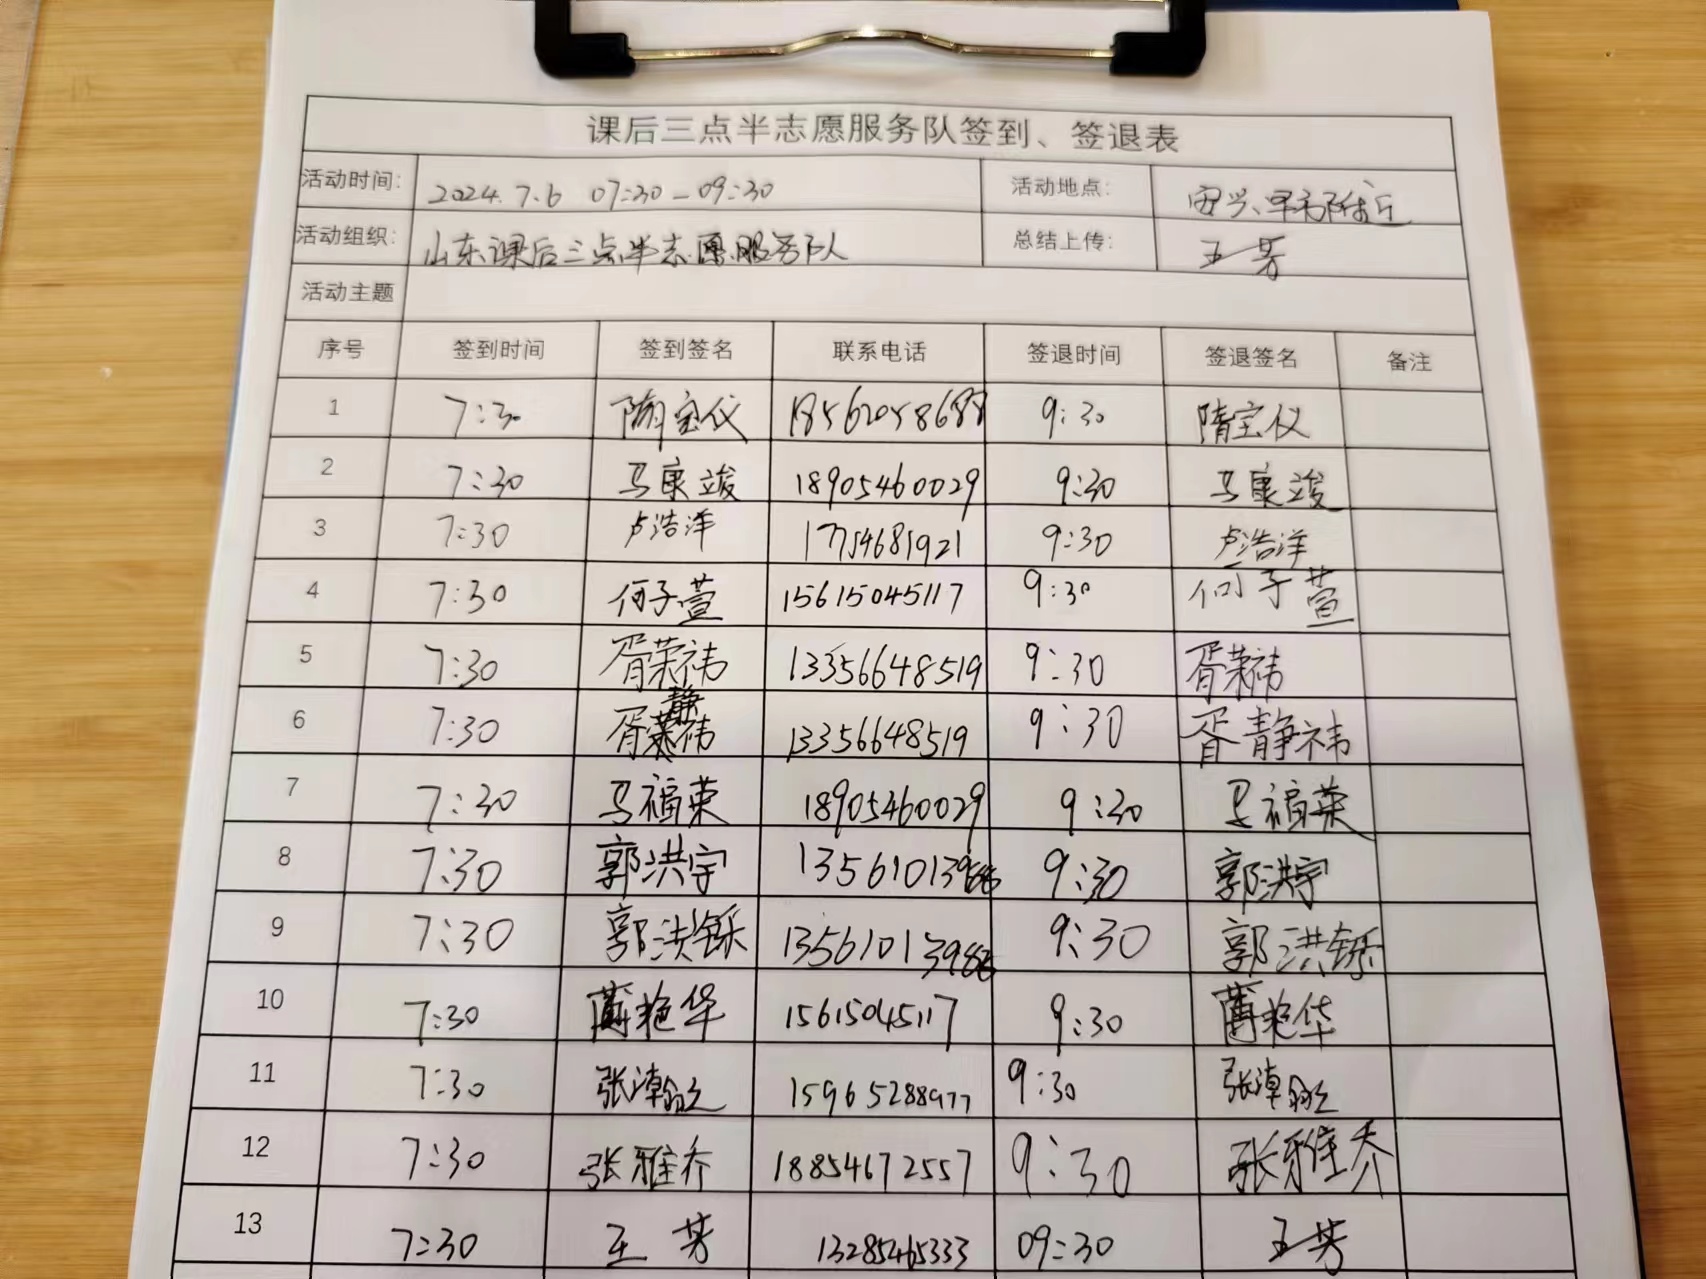 课后三点半志愿服务队签到、签退表
活动时间: 2024.7.6 07:30-09:30 活动地点:
活动组织: 山东课后三点半志愿服务队 总结上传: 王芳
活动主题
序号 签到时间 签到签名 联系电话 签退时间 签退签名 备注
1 7:30 隋宝仪 18562058688 9:30 隋宝仪
2 7:30 马康竣 18905460029 9:30 马康竣
3 7:30 卢浩洋 17754681921 9:30 卢浩洋
4 7:30 何子萱 15615045117 9:30 何子萱
5 7:30 胥荣祎 13356648519 9:30 胥荣祎
6 7:30 胥静祎 13356648519 9:30 胥静祎
7 7:30 马福荣 18905460029 9:30 马福荣
8 7:30 郭洪宇 9:30 郭洪宇
9 7:30 郭洪铄 9:30 郭洪铄
10 7:30 艳华 15615045117 9:30 艳华
11 7:30 张 15965288977 9:30 张
12 7:30 张雅乔 18854672557 9:30 张雅乔
13 7:30 王芳 13285465333 09:30 王芳